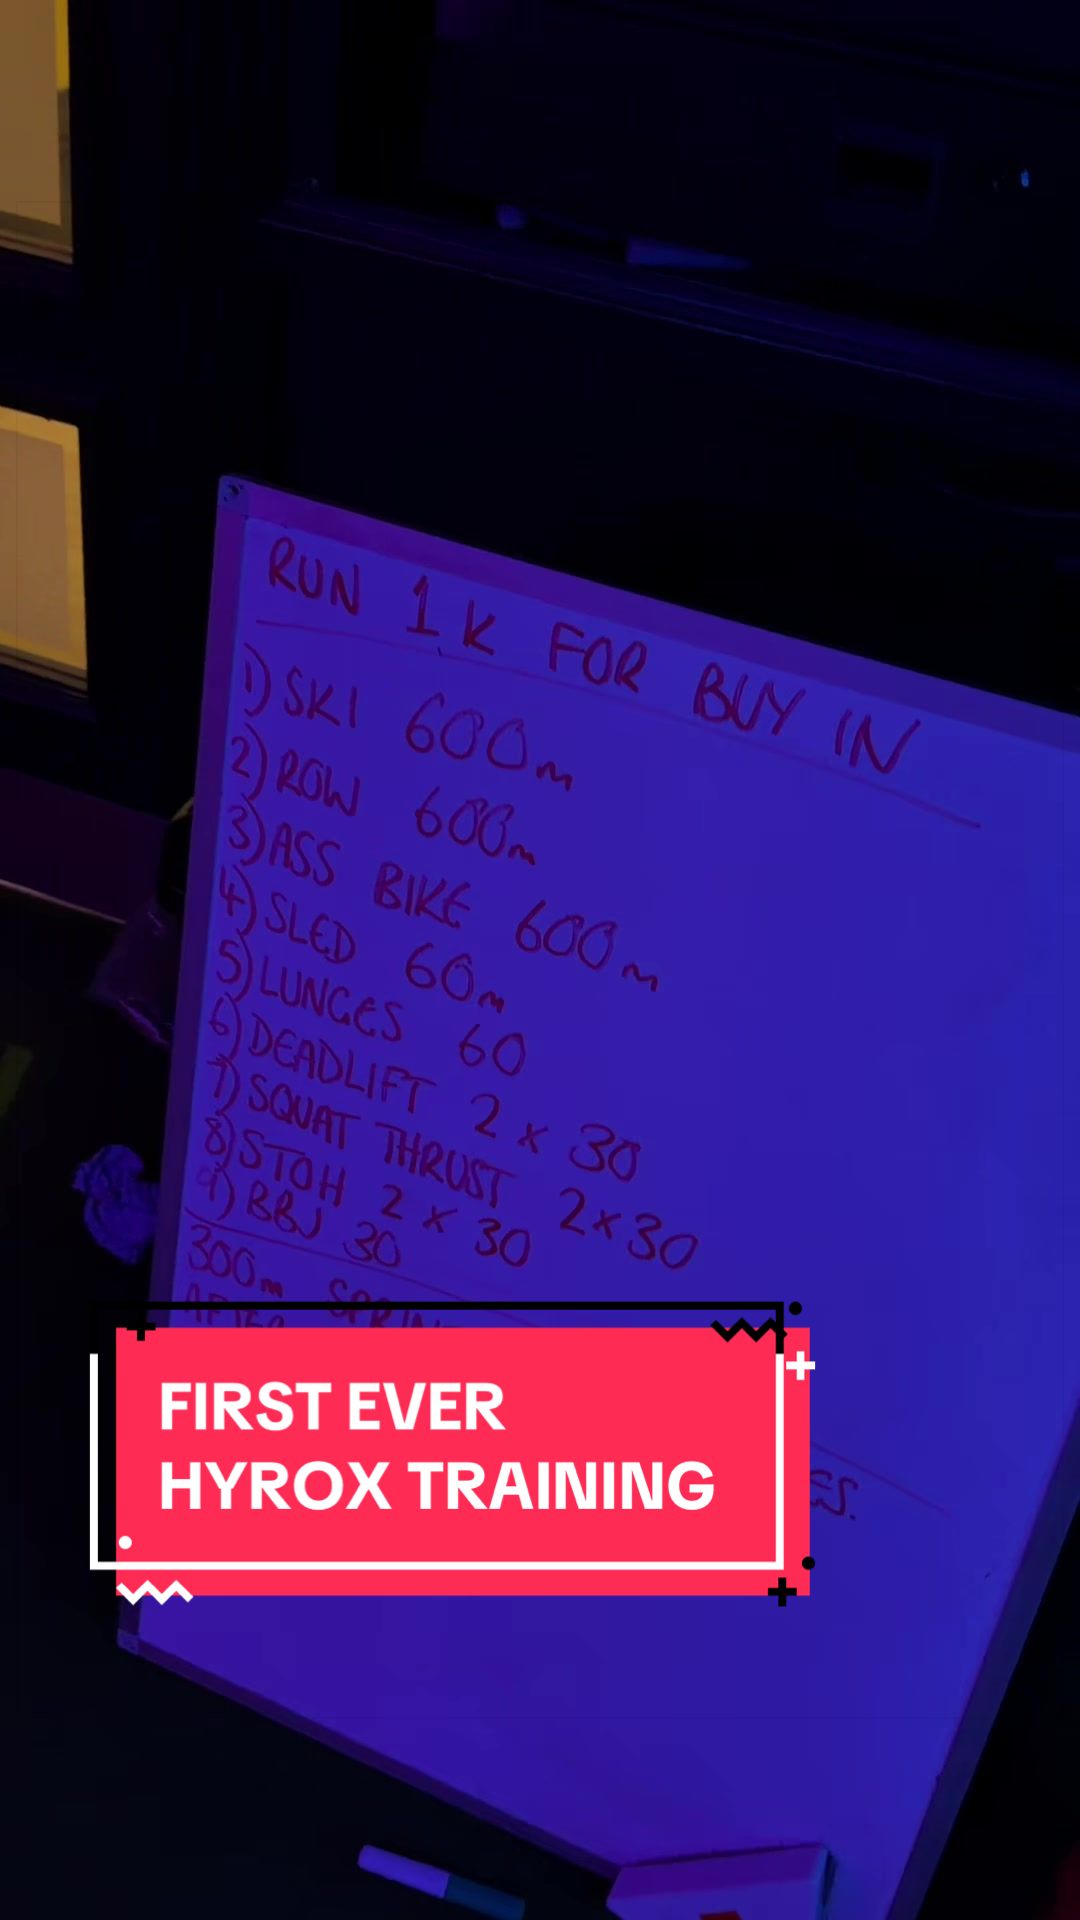 RUN 1K FOR BUY IN
1) SKI 600m
2) ROW 600m
3) ASS BIKE 600m
4) SLED 60m
5) LUNGES 60
6) DEADLIFT 2 x 30
7) SQUAT THRUST 2x30
8) STOH 2 x 30
9) BBJ 30
300m
FIRST EVER
HYROX TRAINING